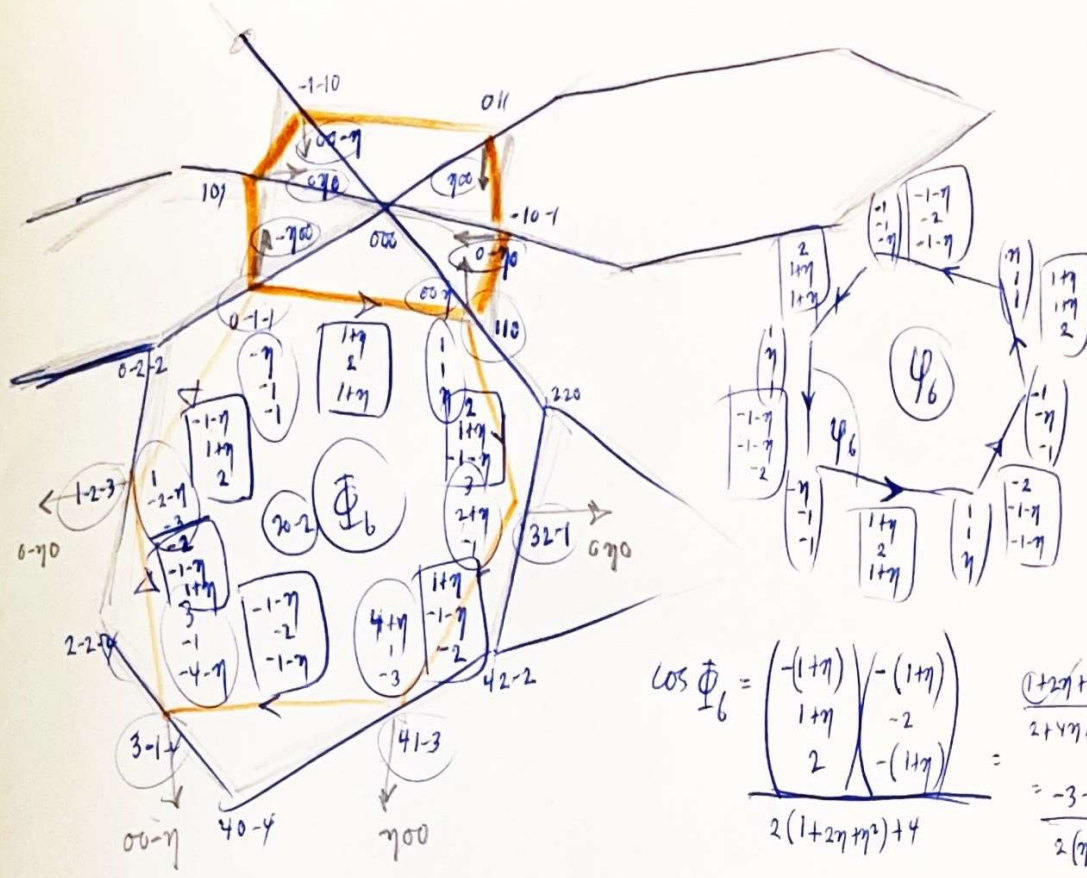 -1-10
011
00-η
101
0η0
η00
-10-1
-η00
000
0-η0
00η
110
0-1-1
0-2-2
220
-η
-1
-1
1+η
2
1+η
1
1
η
2
1+η
-1-η
-1-η
1+η
2
1-2-3
1
-2-η
-3
20-2
Φ6
3
2+η
-1
32-1
0-η0
0η0
-2
-1-η
1+η
3
-1
-4-η
-1-η
-2
-1-η
4+η
1
-3
1+η
-1-η
-2
42-2
41-3
40-4
00-η
η00
-1
-1
-η
-1-η
-2
-1-η
2
1+η
1+η
η
1
1
1+η
1+η
2
1
η
1
-1-η
-1-η
-2
φ6
φ6
-1
-η
-1
-η
-1
-1
1+η
2
1+η
1
1
η
-2
-1-η
-1-η
cos Φ6 =
-(1+η)
1+η
2
-(1+η)
-2
-(1+η)
2(1+2η+η²)+4
=
1+2η+
2+4η
= -3-
2(η